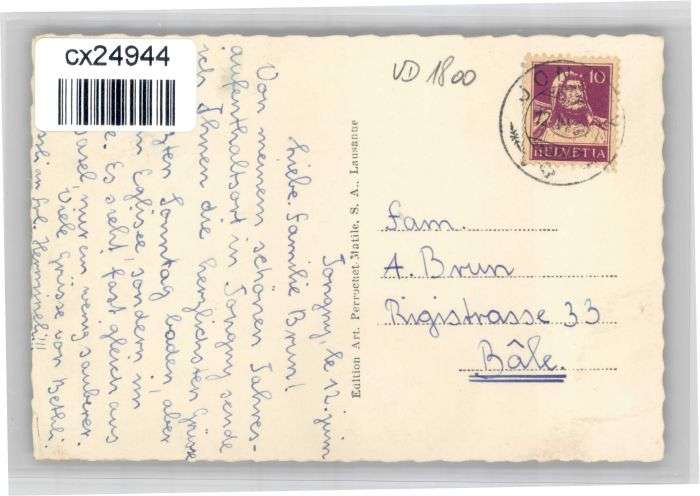 cx24944
VD 1800
10
HELVETIA
Jongny, le 12. juin
Liebe Familie Brun!
Von meinem schönen Jahres-
aufenthaltsort in Jongny sende
ich Ihnen die herzlichsten Grüsse
Sonntag baden, aber
Eglisee, sondern im
Es sieht fast gleich aus
nur ein wenig sauberer.
Viele Grüsse von Bethli.
an Frl. Hemmeli!!!
Edition Art. Perrochet-Matile, S. A., Lausanne
Fam.
A. Brun
Rigistrasse 33
Bâle.